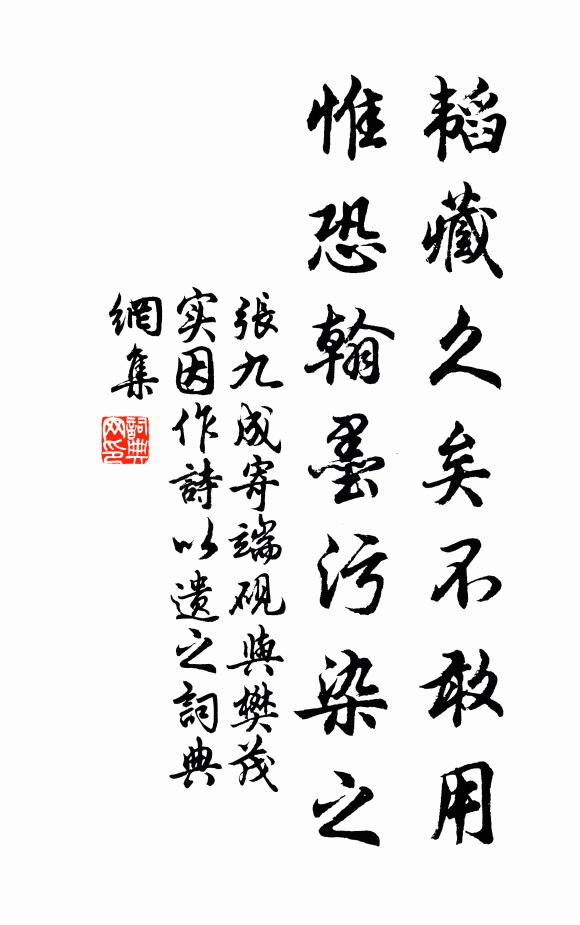 韜藏久矣不敢用
惟恐翰墨污染之
張九成寄端硯與樊茂
实因作詩以遺之詞典
網集
詞典
网印